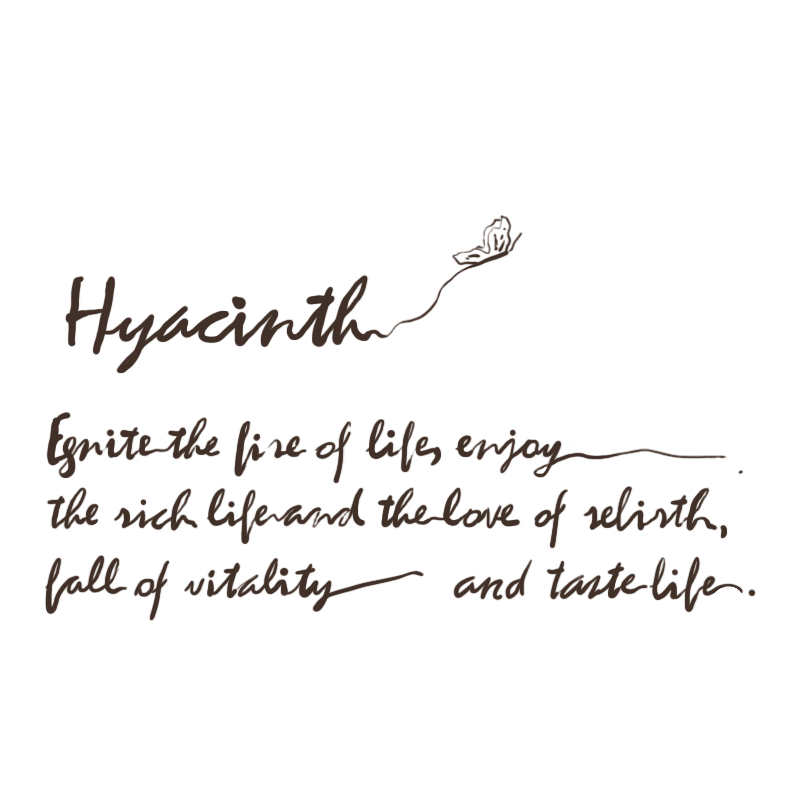 Hyacinth
Egnite the fire of life, enjoy
the rich life and the love of rebirth,
fall of vitality and taste life.